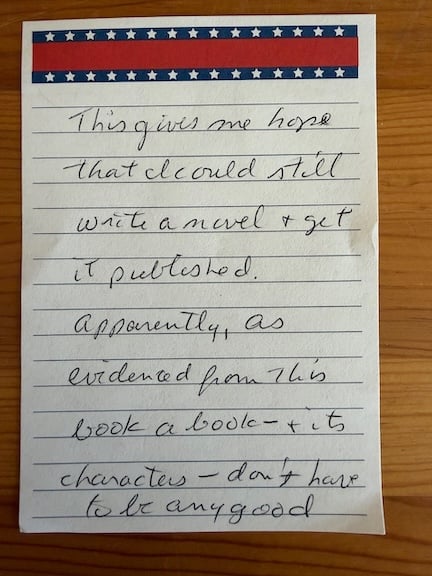 This gives me hope
that I could still
write a novel + get
it published.
apparently, as
evidenced from this
book a book - + its
characters - don't have
to be any good